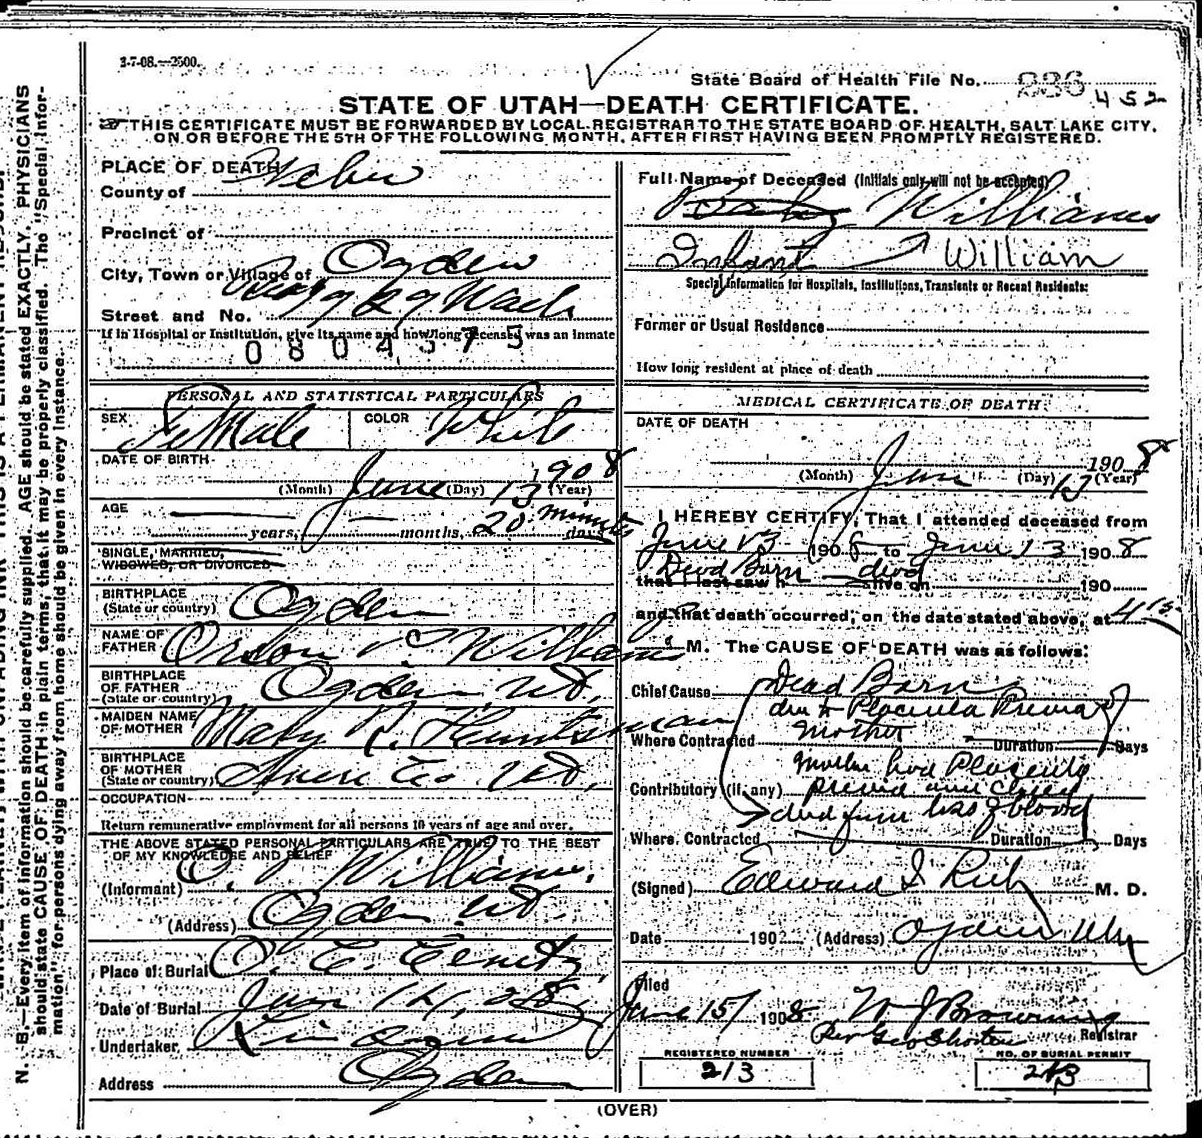 3-7-08.—2500.
State Board of Health File No. 236 452
STATE OF UTAH—DEATH CERTIFICATE.
THIS CERTIFICATE MUST BE FORWARDED BY LOCAL REGISTRAR TO THE STATE BOARD OF HEALTH, SALT LAKE CITY,
ON OR BEFORE THE 5TH OF THE FOLLOWING MONTH, AFTER FIRST HAVING BEEN PROMPTLY REGISTERED.
N. B.—Every item of information should be carefully supplied. AGE should be stated EXACTLY. PHYSICIANS
should state CAUSE OF DEATH in plain terms, that it may be properly classified. The "Special Infor-
mation" for persons dying away from home should be given in every instance.
PLACE OF DEATH
County of Weber
Precinct of
City, Town or Village of Ogden
Street and No. Wash
If in Hospital or Institution, give its name and how long deceased was an inmate
0804375
PERSONAL AND STATISTICAL PARTICULARS
SEX FeMale COLOR White
DATE OF BIRTH
June 13 1908
(Month) (Day) (Year)
AGE
years, months, 20 minutes days
SINGLE, MARRIED,
WIDOWED, OR DIVORCED
BIRTHPLACE
(State or country) Ogden
NAME OF
FATHER Orson P. Williams
BIRTHPLACE
OF FATHER
(State or country) Ogden Ut.
MAIDEN NAME
OF MOTHER Mary R. Huntsman
BIRTHPLACE
OF MOTHER
(State or country) Co. Ut.
OCCUPATION
Return remunerative employment for all persons 10 years of age and over.
THE ABOVE STATED PERSONAL PARTICULARS ARE TRUE TO THE BEST
OF MY KNOWLEDGE AND BELIEF
(Informant) O. P. Williams.
(Address) Ogden Ut.
Place of Burial O. C. Cemty
Date of Burial June 14, 08
Undertaker
Address Ogden
Full Name of Deceased (Initials only will not be accepted)
Baby Williams
Infant William
Special Information for Hospitals, Institutions, Transients or Recent Residents:
Former or Usual Residence
How long resident at place of death
MEDICAL CERTIFICATE OF DEATH
DATE OF DEATH
June 13 1908
(Month) (Day) (Year)
I HEREBY CERTIFY, That I attended deceased from
June 13 1908 to June 13 1908
Dead Born dead
that I last saw h alive on 190
and that death occurred, on the date stated above, at 4 15
M. The CAUSE OF DEATH was as follows:
Chief Cause Dead Born
due to Placenta Previa
Where Contracted mother Duration Days
Mother had Placenta
Contributory (if any) previa and child
died from loss of blood
Where Contracted Duration Days
(Signed) Edward I Rich M. D.
Date 190 (Address) Ogden Utah
Filed
June 15 1908 W J Browning
Registrar
Per Geo Shorten
REGISTERED NUMBER
213
NO. OF BURIAL PERMIT
213
(OVER)